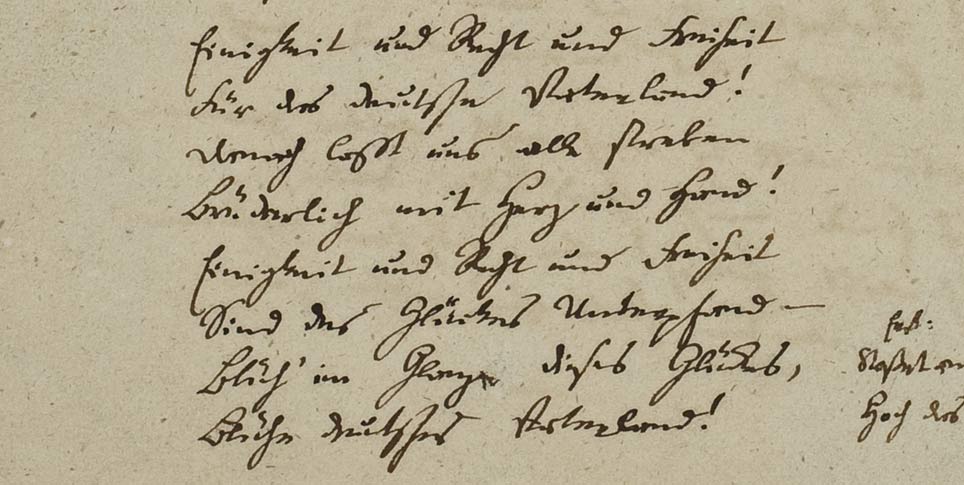 Einigkeit und Recht und Freiheit
Für das deutsche Vaterland!
Danach laßt uns alle streben
Brüderlich mit Herz und Hand!
Einigkeit und Recht und Freiheit
Sind des Glückes Unterpfand –
Blüh' im Glanze dieses Glückes,
Blühe deutsches Vaterland!
Stoßet an
Hoch das